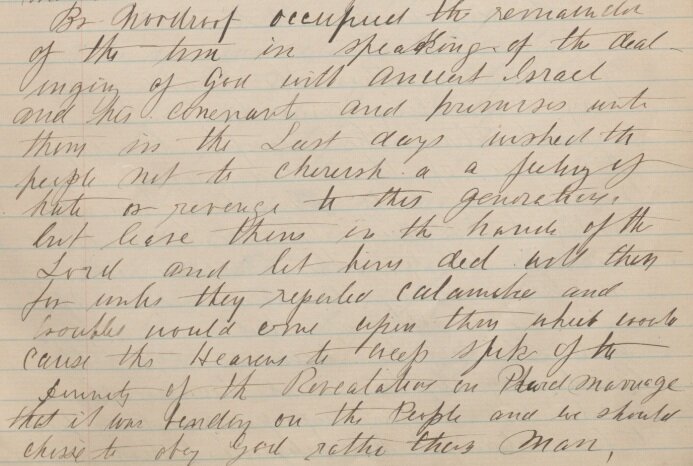 Br Woodroof occupied the remainder
of the tim in speaking of the deal-
inging of God with Ancient Israel
and his covenant and promises with
them in the Last days wished the
people not to cherish a a feeling of
hate or revenge to this generation,
but leave them in the hands of the
Lord and let him deal with them
for unles they repented calamitie and
troubles would come upon them which would
cause the Heavens to weep spek of the
of the Revelation on Plurd marriage
that it was binding on the People and we should
chose to obey God rather then Man,